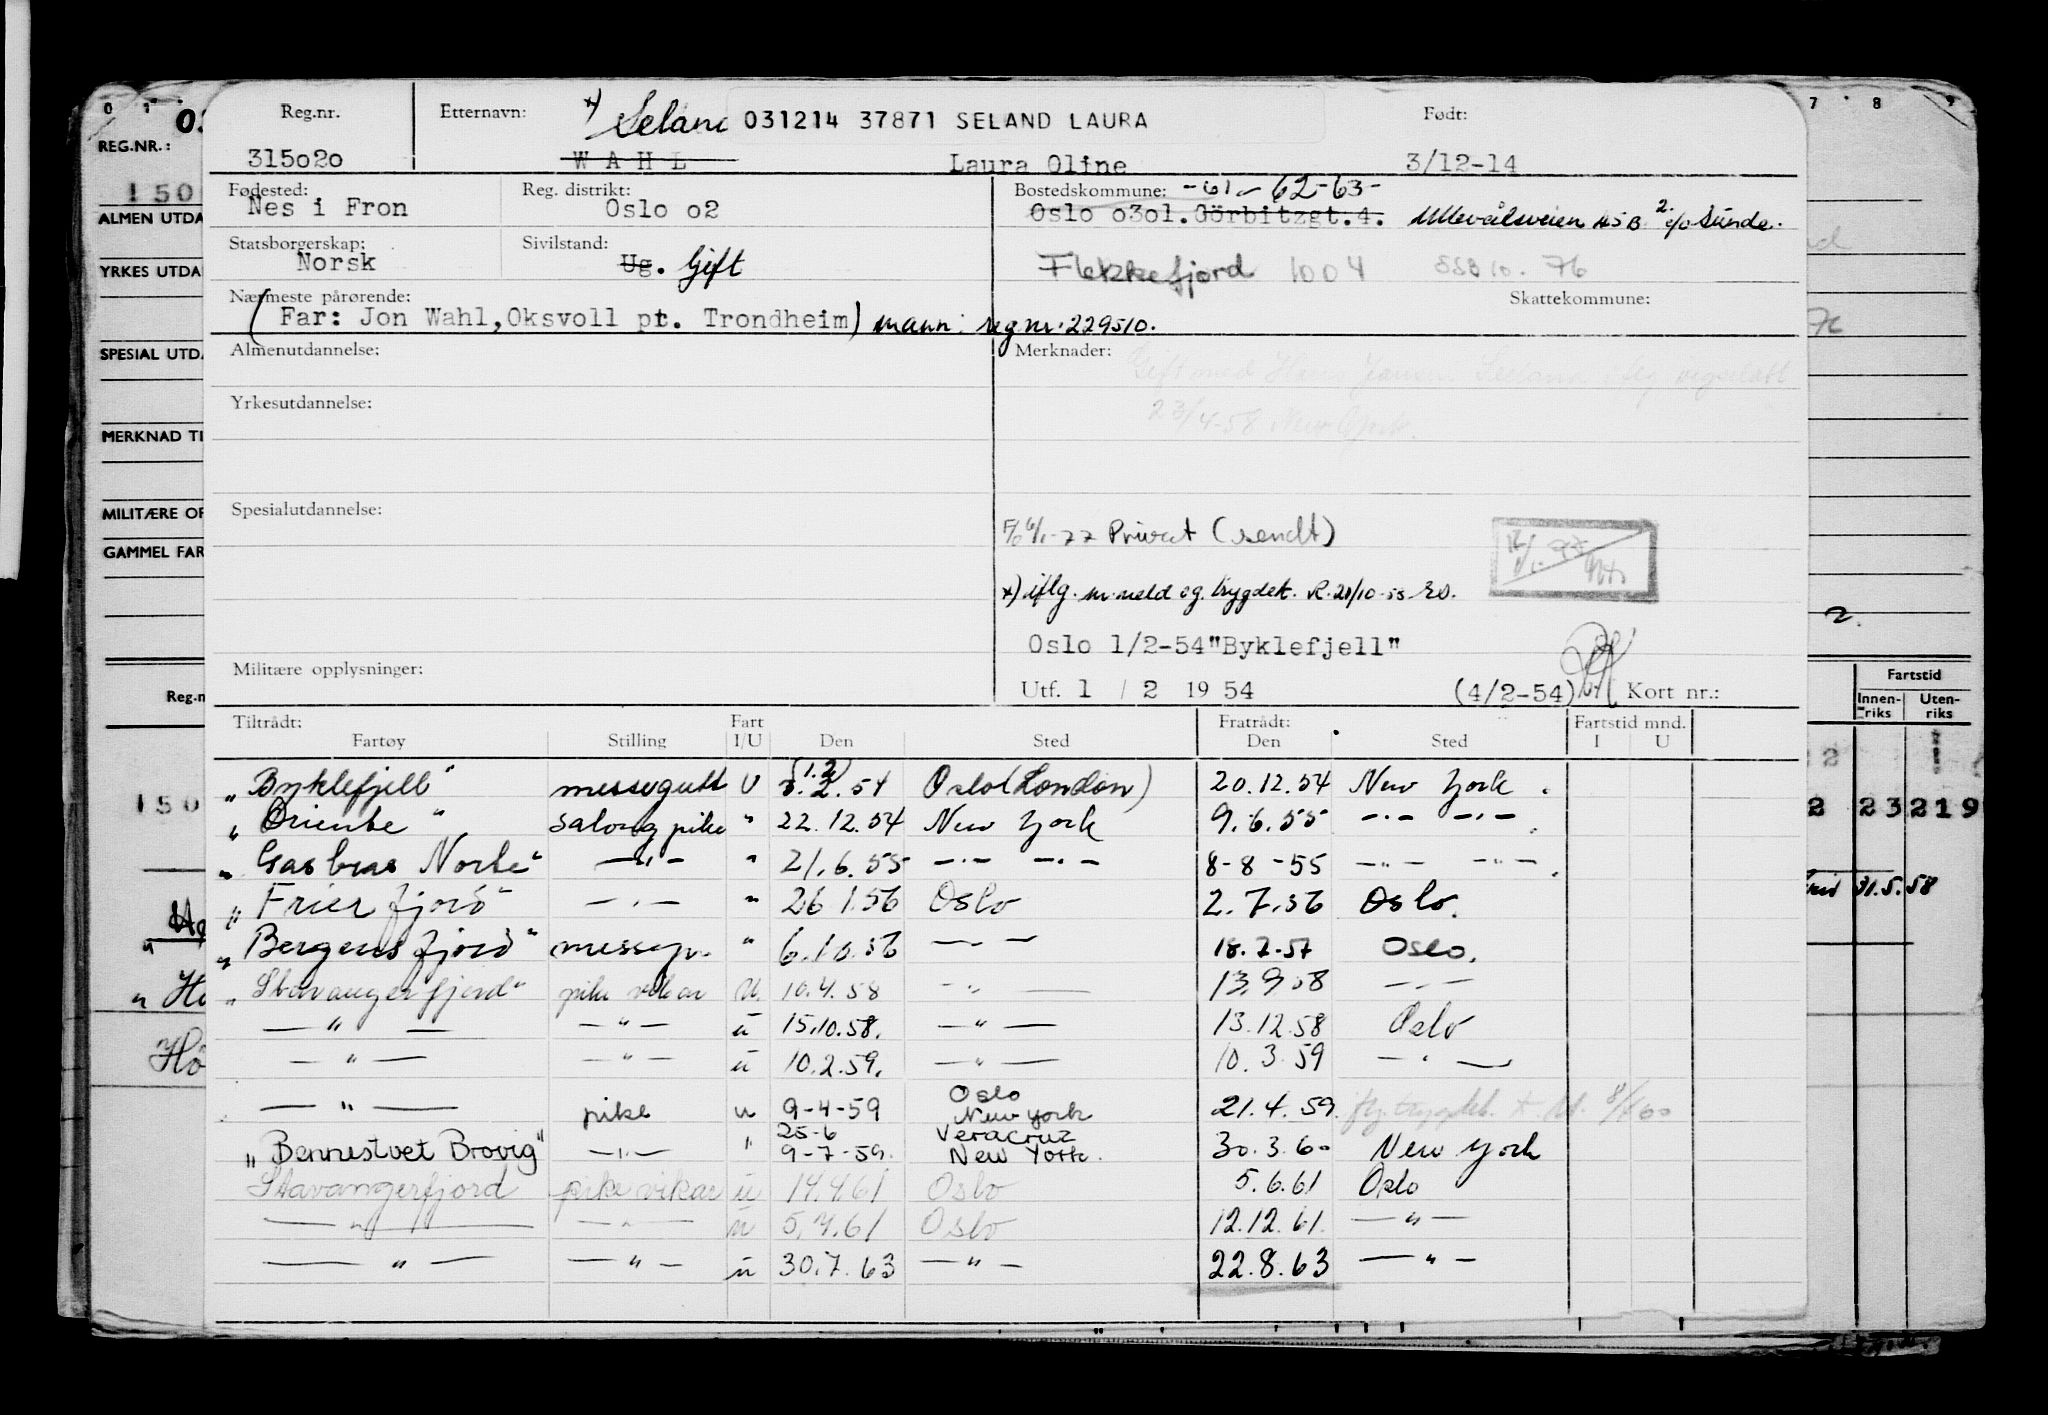 Reg.nr. Etternavn: *) Seland 031214 37871 SELAND LAURA Født:
315o2o W A H L Laura Oline 3/12-14
Fødested: Reg. distrikt: Bostedskommune: -61- 62-63-
Nes i Fron Oslo o2 Oslo o3ol. Görbitzgt.4. Ullevålsveien 115 B 2. c/o Sunde.
Statsborgerskap: Sivilstand:
Norsk Ug. Gift Flekkefjord 1004 SSB 10. 76
Nærmeste pårørende: Skattekommune:
(Far: Jon Wahl, Oksvoll pt. Trondheim) mann: reg nr. 229510.
Almenutdannelse: Merknader:
Gift med Hans Seland vigselatt
23/4-58 New York.
Yrkesutdannelse:
Spesialutdannelse:
6/1-77 Privat (sendt)
*) iflg. m.meld og. trygdek. R. 21/10-58 rs.
Oslo 1/2-54 "Byklefjell"
Militære opplysninger:
Utf. 1 / 2 19 54 (4/2-54) Kort nr.:
Tiltrådt: Fart Fratrådt: Fartstid mnd.
Fartøy Stilling I/U Den Sted Den Sted I U
"Byklefjell" messegutt U (1.2) 3.2.54 Oslo (London) 20.12.54 New York.
"Oriente" salongpike " 22.12.54 New York 9.6.55 -"- -"-
"Gasbras Norte" -"- " 21.6.55 -"- -"- 8-8-55 -"- -"-
"Frierfjord" -"- " 26 1.56 Oslo 2.7.56 Oslo.
"Bergensfjord" messep. " 6.10.56 -"- 18.7.57 Oslo.
"Stavangerfjord" pike vikar U. 10.4.58 -"- 13.9 58 -"-
-"- -"- u 15.10.58. -"- 13.12.58 Oslo
-"- -"- u 10.2.59. -"- 10.3.59 -"-
-"- pike u 9-4-59 Oslo New York 21.4.59.
"Bennestvet Brovig" -"- " 25-6 9-7-59. Veracruz New York. 30.3.60 New York
Stavangerfjord pike vikar u 14.4.61 Oslo 5.6.61 Oslo
-"- -"- u 5.7.61 Oslo 12.12.61. -"-
-"- -"- u 30.7.63 -"- 22.8.63 -"-
REG.NR.:
150
ALMEN UTDA
YRKES UTDA
SPESIAL UTD
MERKNAD TI
MILITÆRE OP
GAMMEL FAR
Reg.n
150
Hö
7 8 9
2.
Fartstid
Innenriks Utenriks
2 23 219
31.5.58